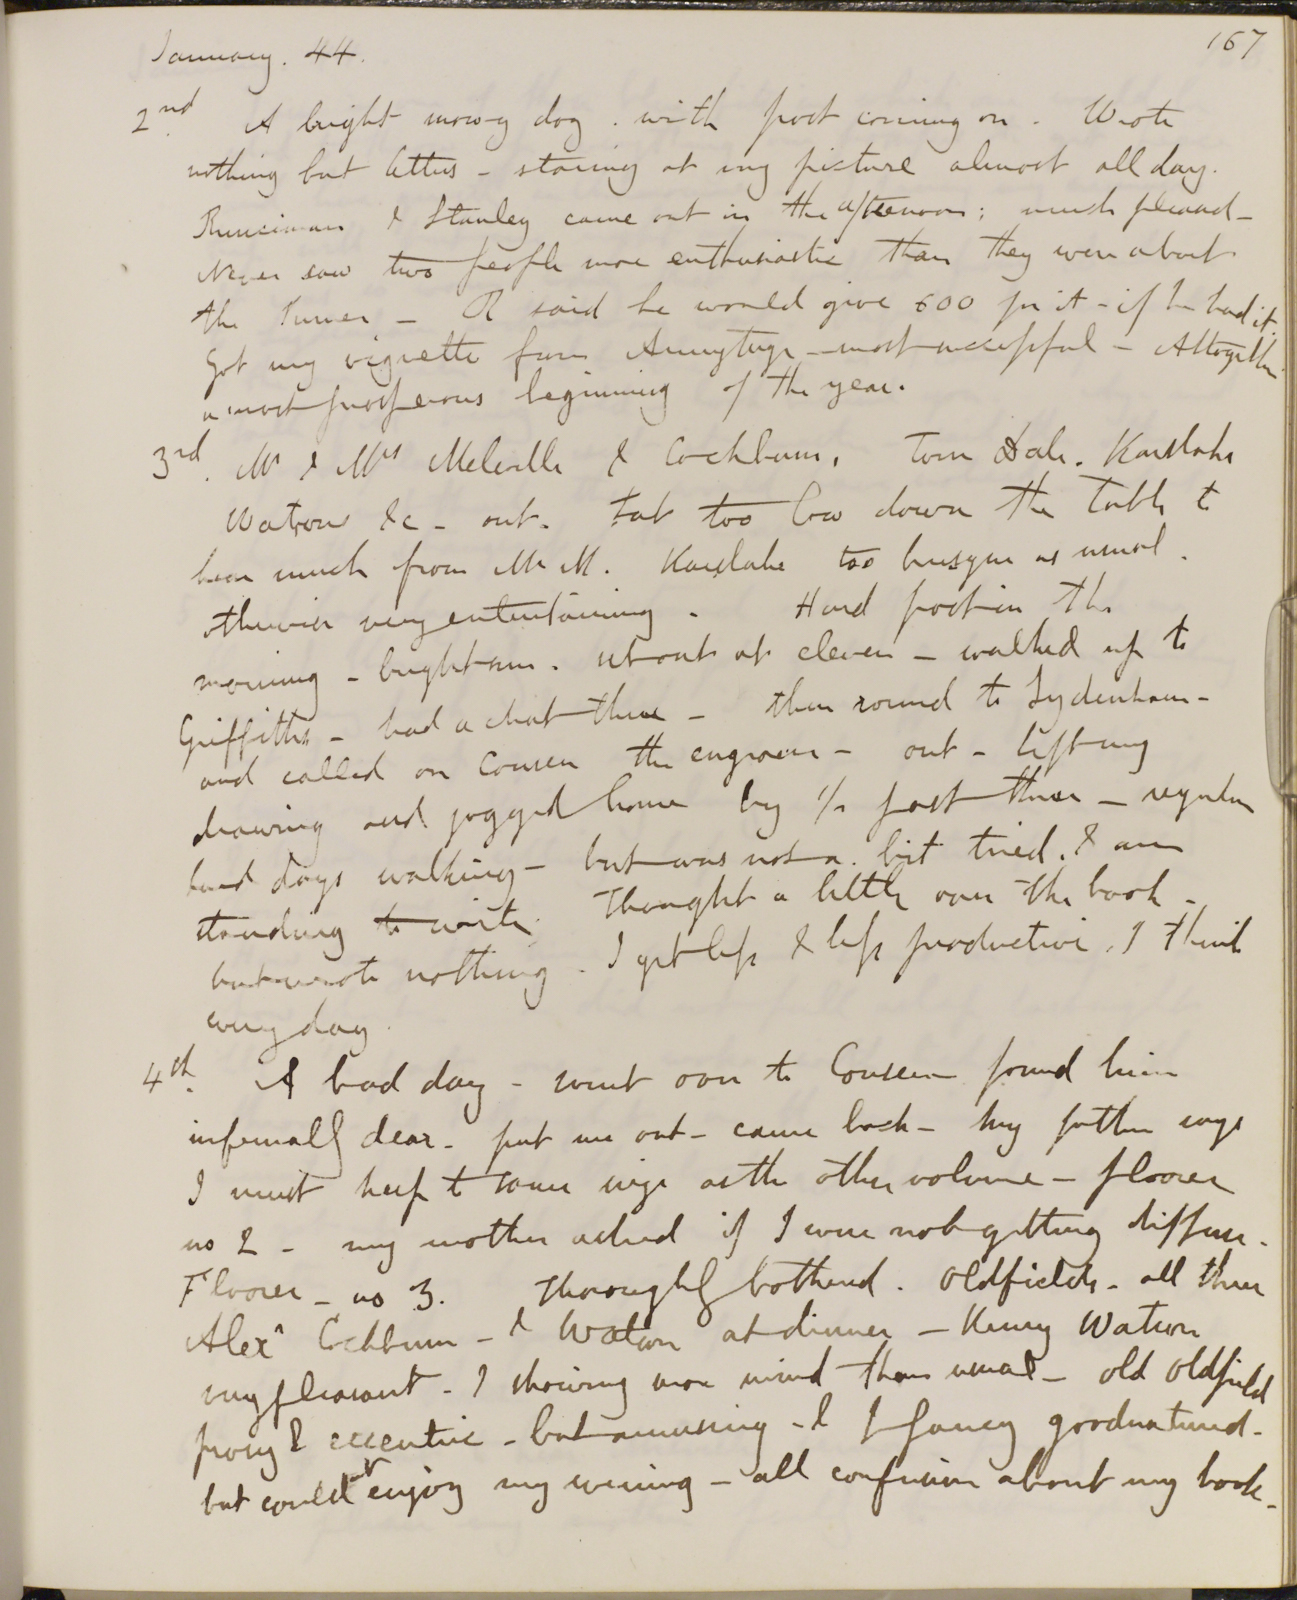 January. 44.
167
2nd. A bright snowy day. with frost coming on. Wrote
nothing but letters - staring at my picture almost all day.
Runciman & Stanley came out in the afternoon; much pleased -
Never saw two people more enthusiastic than they were about
the Turner - R said he would give 600 for it - if he had it.
Got my vignette from Armytage - most successful - Altogether
a most prosperous beginning of the year.
3rd. Mr & Mrs Melville & Cockburn, Tom Dale. Karslake
Watson &c - out. Sat too low down the table to
hear much from Mr M. Karslake too brusque as usual.
otherwise very entertaining. Hard frost in the
morning - bright sun. set out at eleven - walked up to
Griffiths - had a chat there - then round to Sydenham -
and called on Cousen the engraver - out - left my
drawing and jogged home by 1/2 past three - regular
hard days walking - but was not a bit tired. & am
standing to write. Thought a little over the book -
but wrote nothing. I get less & less productive, I think
every day.
4th. A bad day - went over to Cousen - found him
infernally dear - put me out - came back - my father says
I must keep to same size as the other volume - floorer
no 2 - my mother asked if I were not getting diffuse.
Floorer - no 3. Thoroughly bothered. Oldfields - all three
Alexr Cockburn - & Watson at dinner - Henry Watson
very pleasant. I showing more mind than usual - old Oldfield
prosy & eccentric - but amusing - & I fancy goodnatured -
but could nt enjoy my evening - all confusion about my book -